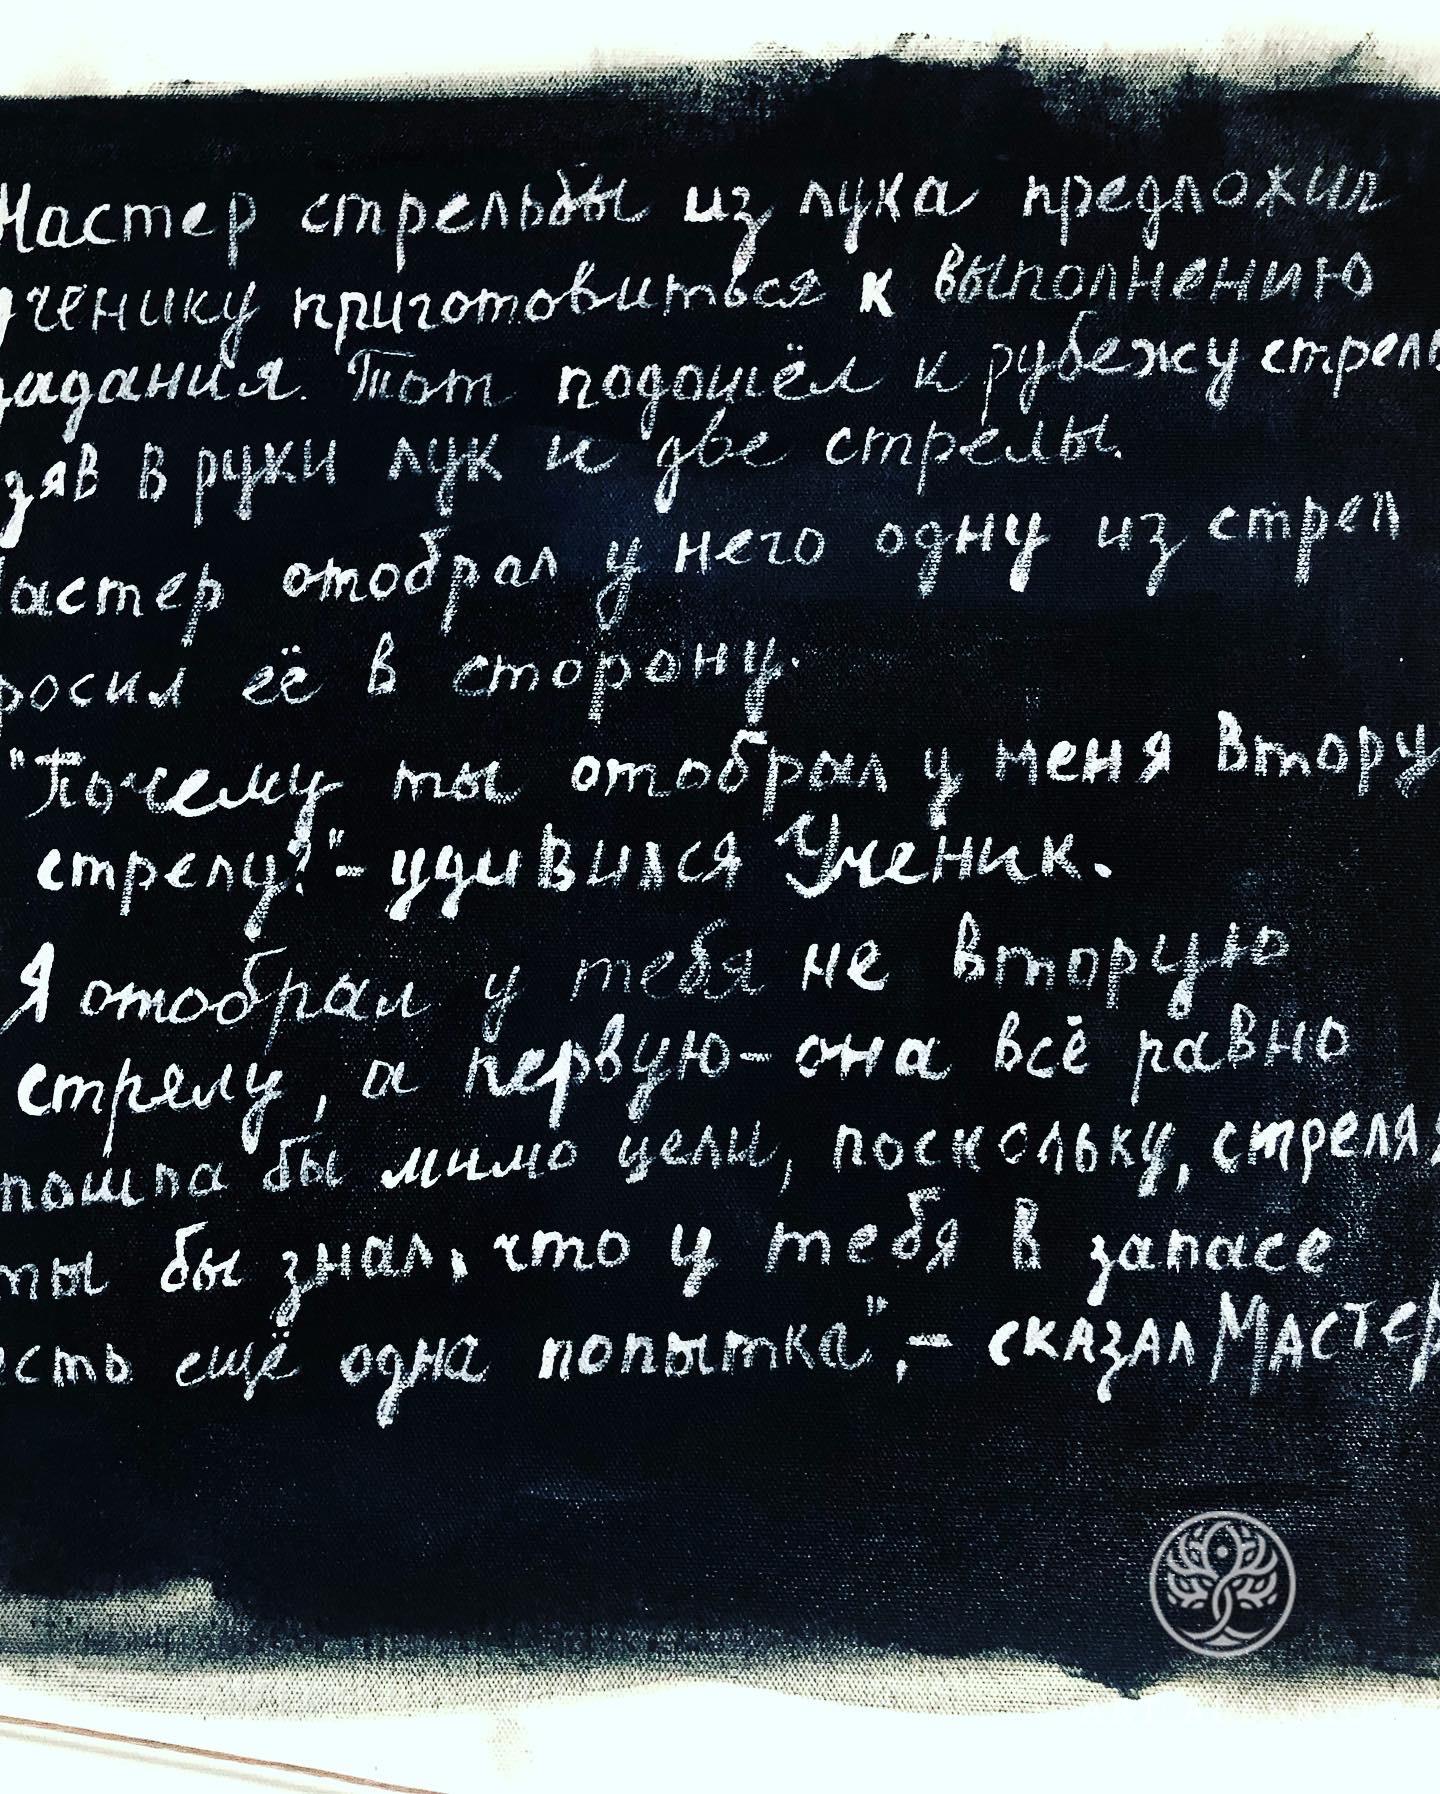 Мастер стрельбы из лука предложил
ученику приготовиться к выполнению
задания. Тот подошёл к рубежу стрель
зяв в руки лук и две стрелы.
Мастер отобрал у него одну из стрел
росил её в сторону.
"Почему ты отобрал у меня втору
стрелу?"- удивился Ученик.
Я отобрал у тебя не вторую
стрелу, а первую- она всё равно
пошла бы мимо цели, поскольку, стреляя
ты бы знал, что у тебя в запасе
есть ещё одна попытка",- сказал Мастер